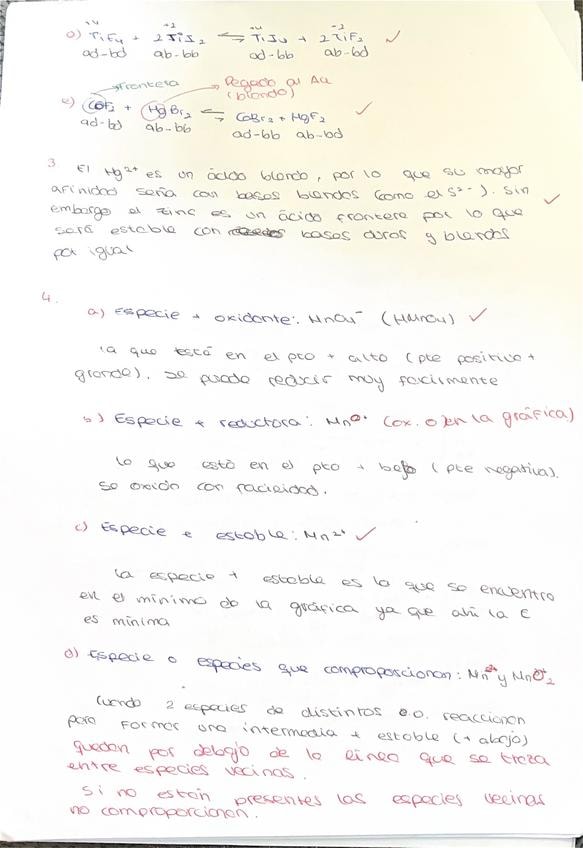 +4 +2 +4 -2
d) TiF4 + 2TiI2 ⇌ TiI4 + 2TiF2 ✓
ad-bd ab-bb ad-bb ab-bd
Frontera Pegado al Au
(blando)
e) CoF2 + HgBr2 ⇌ CoBr2 + HgF2 ✓
ad-bd ab-bb ad-bb ab-bd
3 El Hg2+ es un ácido blando, por lo que su mayor
afinidad seria con bases blandas (como el S2-). Sin
embargo el zinc es un ácido frontera por lo que
será estable con bases duras y blandas
por igual
4.
a) Especie + oxidante: MnO4- (HMnO4) ✓
ya que está en el pto + alto (pte positiva +
grande). Se puede reducir muy facilmente
b) Especie + reductora: Mn0 (ox. 0 en la gráfica)
lo que está en el pto + bajo (pte negativa).
Se oxida con facilidad.
c) Especie + estable: Mn2+ ✓
La especie + estable es la que se encuentra
en el mínimo de la gráfica ya que ahí la E
es mínima
d) Especie o especies que comproporcionan: Mn y MnO2
Cuando 2 especies de distintos e.o. reaccionan
para formar una intermedia + estable (+ abajo)
quedan por debajo de la línea que se traza
entre especies vecinas.
Si no están presentes las especies vecinas
no comproporcionan.